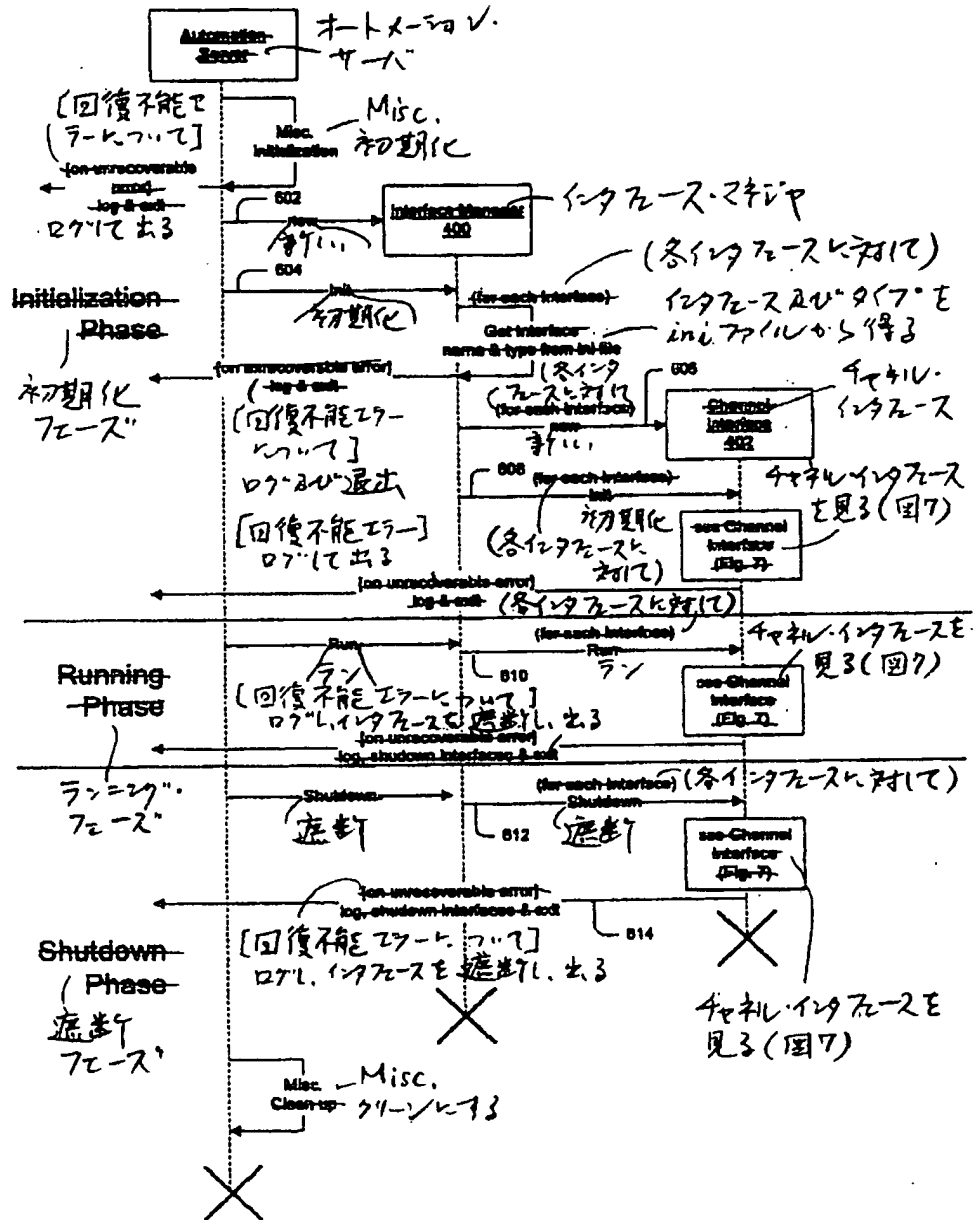 Automation
Server
オートメーション・
サーバ
[回復不能エ
ラーについて]
Misc.
Initialization
Misc.
初期化
[on unrecoverable
error]
log & exit
ログして出る
602
new
新しい
Interface Manager
400
インタフェース・マネジャ
604
Init
初期化
(for each interface)
(各インタフェースに対して)
Initialization
Phase
初期化
フェーズ
Get interface
name & type from ini file
インタフェース及びタイプを
ini.ファイルから得る
[on unrecoverable error]
log & exit
[回復不能エラー
について]
ログ及び退出
(各インタ
フェースに対して
(for each interface)
new
新しい
606
Channel
Interface
402
チャネル・
インタフェース
608
(for each interface)
Init
初期化
(各インタフェースに
対して)
see Channel
Interface
(Fig. 7)
チャネル・インタフェース
を見る(図7)
[回復不能エラー]
ログして出る
[on unrecoverable error]
log & exit
(各インタフェースに対して)
Running
Phase
ランニング・
フェーズ
Run
ラン
(for each interface)
Run
ラン
610
see Channel
Interface
(Fig. 7)
チャネル・インタフェースを
見る(図7)
[回復不能エラーについて]
ログし、インタフェースを遮断し、出る
[on unrecoverable error]
log, shudown interfaces & exit
Shutdown
遮断
(for each interface)
(各インタフェースに対して)
Shutdown
遮断
612
see Channel
Interface
(Fig. 7)
チャネル・インタフェースを
見る(図7)
[on unrecoverable error]
log, shudown interfaces & exit
614
[回復不能エラーについて]
ログし、インタフェースを遮断し、出る
Shutdown
Phase
遮断
フェーズ
Misc.
Clean up
Misc.
クリーンにする